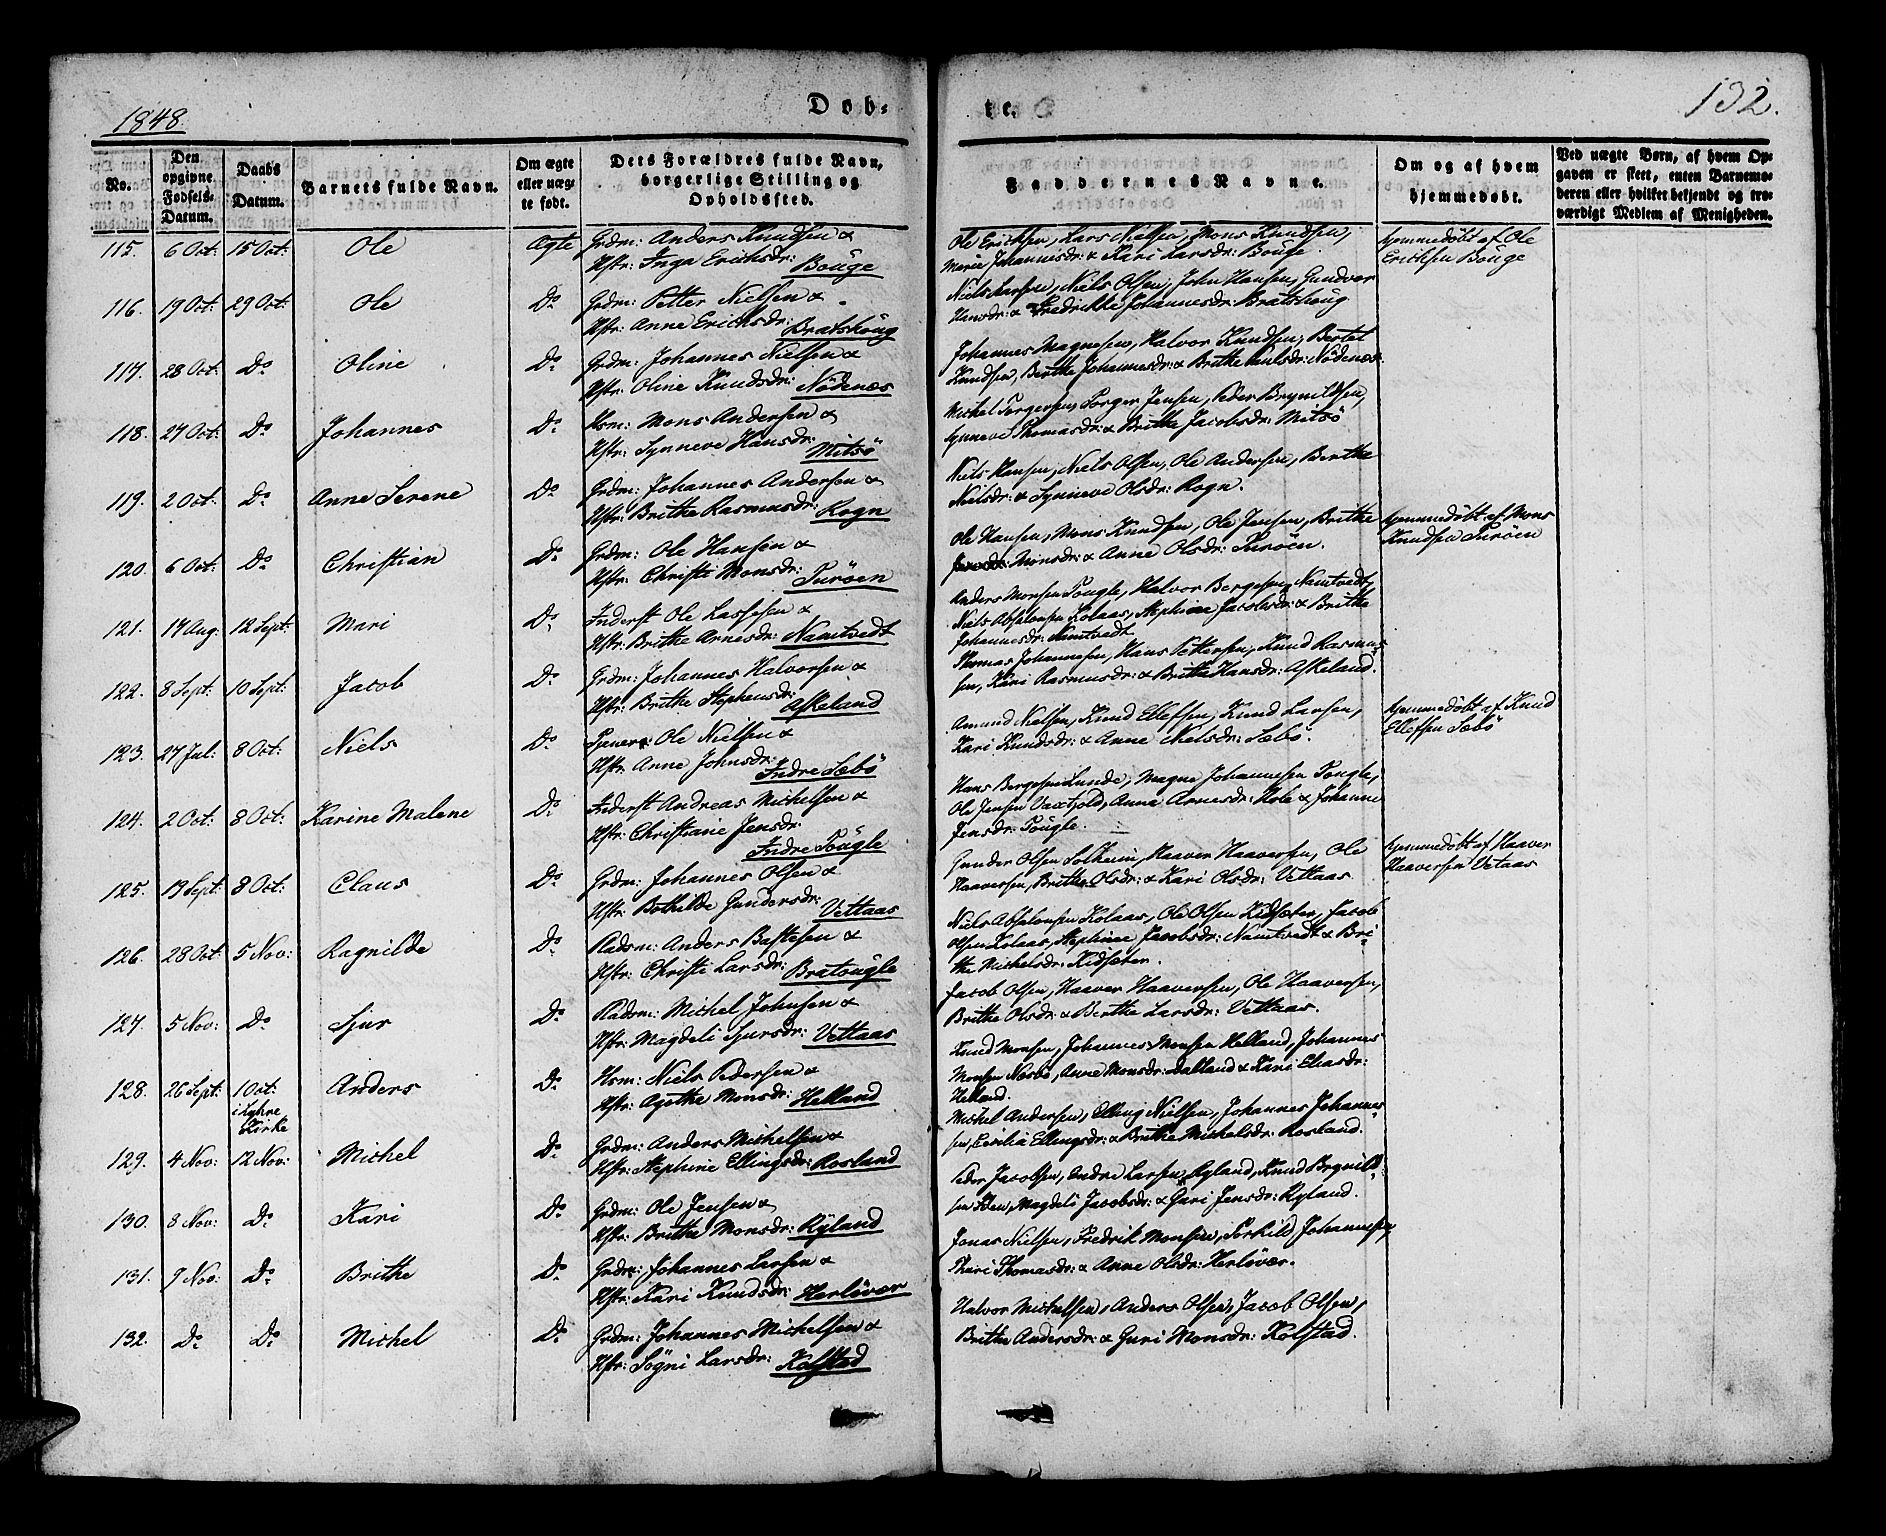 1848.
Døb-
te.
132.
No.
Den opgivne Fødsels-Datum.
Daabs Datum.
Barnets fulde Navn.
Om ægte eller uægte født.
Dets Forældres fulde Navn, borgerlige Stilling og Opholdssted.
Faddernes Navne.
Om og af hvem hjemmedøbt.
Ved uægte Børn, af hvem Opgaven er skeet, enten Barnemoderen eller hvilket bekjendt og troværdigt Medlem af Menigheden.
115. 6 Oct: 15 Oct: Ole Ægte Grdm: Anders Knudsen &
Hstr: Inga Erichsdr: Bouge
Ole Erichsen, Lars Nielsen, Mons Knudsen,
Marie Johannisdr: & Kari Larsdr: Bouge.
hjemmedøbt af Ole
Erichsen Bouge
116. 19 Oct: 29 Oct: Ole Do Grdm: Petter Nielsen &
Hstr: Anne Erichsdr: Bratshoug
Niels Larsen, Niels Olsen, John Hansen, Gundvor
Hansdr: & Fredrikke Johannesdr: Bratshoug
117. 28 Oct: Do Oline Do Grdm: Johannes Nielsen &
Hstr: Oline Knudsdr: Nødenæs
Johannes Magnesen, Halvor Knudsen, Bertel
Knudsen, Berthe Johannesdr: & Brithe Nielsdr: Nødenæs.
118. 27 Oct: Do Johannes Do Hsm: Mons Andersen &
Hstr: Synneve Hansdr: Mitsö
Michel Torgersen, Torger Jensen, Peder Brynildsen,
Synneve Thomasdr: & Brithe Jacobsdr: Mitsö
119. 2 Oct: Do Anne Serene Do Grdm: Johannes Andersen &
Hstr: Brithe Rasmusdr: Rogn
Niels Hansen, Niels Olsen, Ole Andersen, Berthe
Nielsdr: & Synneve Olsdr: Rogn.
120. 6 Oct: Do Christian Do Grdm: Ole Hansen &
Hstr: Christi Monsdr: Turöen
Ole Hansen, Mons Knudsen, Ole Jensen, Brithe
Monsdr: & Anne Olsdr: Turöen.
hjemmedøbt af Mons
Knudsen Turöen
121. 17 Aug: 12 Sept: Mari Do Inderst Ole Lassesen &
Hstr: Brithe Arnesdr: Namtvedt
Anders Monsen Tougle, Halvor Bergesen Namtvedt,
Niels Absolonsen Kolaas, Stephine Jacobsdr: & Brithe
Johannesdr: Namtvedt
122. 8 Sept: 10 Sept: Jacob Do Grdm: Johannes Halvorsen &
Hstr: Brithe Stephensdr: Askeland
Thomas Johannesen, Hans Pettersen, Knud Rasmus-
sen, Kari Rasmusdr: & Brithe Hansdr: Askeland.
123. 27 Jul: 8 Oct: Niels Do Ole Nielsen &
Hstr: Anne Johnsdr: Indre Sæbö
Amund Nielsen, Knud Ellefsen, Knud Larsen,
Kari Knudsdr: & Anne Nielsdr: Sæbö.
hjemmedøbt af Knud
Ellefsen Sæbö
124. 2 Oct: 8 Oct: Karine Malene Do Inderst Andreas Michelsen &
Hstr: Christiane Jensdr:
Indre Tougle
Hans Bergesen Lunde, Magne Johannesen Tougle,
Ole Jensen, Anne Arnesdr: Hole & Johanne
Jensdr: Tougle.
125. 19 Sept: 8 Oct: Claus Do Grdm: Johannes Olsen &
Hstr: Bothilde Gundersdr: Vettaas
Gunder Olsen Solheim, Haaver Haaversen, Ole
Haaversen, Brithe Olsdr: & Kari Olsdr: Vettaas
hjemmedøbt af Haaver
Haaversen Vetaas
126. 28 Oct 5 Nov: Ragnilde Do Pladsm: Anders Bastesen &
Hstr: Christi Larsdr: Bratougle
Niels Absolonsen Kolaas, Ole Olsen Kidsæter, Jacob
Olsen Kolaas, Stephine Jacobsdr: Namtvedt & Bri-
the Michelsdr: Kidsæter.
127. 5 Nov: Do Sjur Do Pladsm: Michel Johnsen &
Hstr: Magdeli Sjursdr: Vettaas
Jacob Olsen, Haaver Haaversen, Ole Haaversen,
Brithe Olsdr: & Berthe Larsdr: Vettaas.
128. 26 Sept: 1 Oct: i Lyhre Kirke Anders Do Hsm: Niels Pedersen &
Hstr: Agethe Monsdr: Helland
Knud Monsen, Johannes Monsen Helland, Johannes
Monsen Næsbö, Anne Monsdr: Dalland & Kari Eliasdr:
Helland.
129. 4 Nov: 12 Nov: Michel Do Grdm: Anders Michelsen &
Hstr: Stephine Ellingsdr: Rosland
Michel Andersen, Elling Nielsen, Johannes Johannes-
sen, Cecilia Ellingsdr: & Brithe Michelsdr: Rosland.
130. 8 Nov: Do Kari Do Grdm: Ole Jensen &
Hstr: Brithe Monsdr: Ryland
Peder Jacobsen, Andre Larsen Ryland, Knud Brynild-
sen Iden, Magdeli Jacobsdr: & Guri Jensdr: Ryland.
131. 9 Nov: Do Brithe Do Grdm: Johannes Larsen &
Hstr: Kari Knudsdr: Herløvær
Jonas Nielsen, Fredrik Monsen, Terkild Johannesen,
Kari Thomasdr: & Anne Olsdr: Herløvær.
132. Do Do Michel Do Grdm: Johannes Michelsen &
Hstr: Sögni Larsdr: Kolstad
Halvor Michelsen, Anders Olsen, Jacob Olsen,
Brithe Andersdr: & Guri Monsdr: Kolstad.